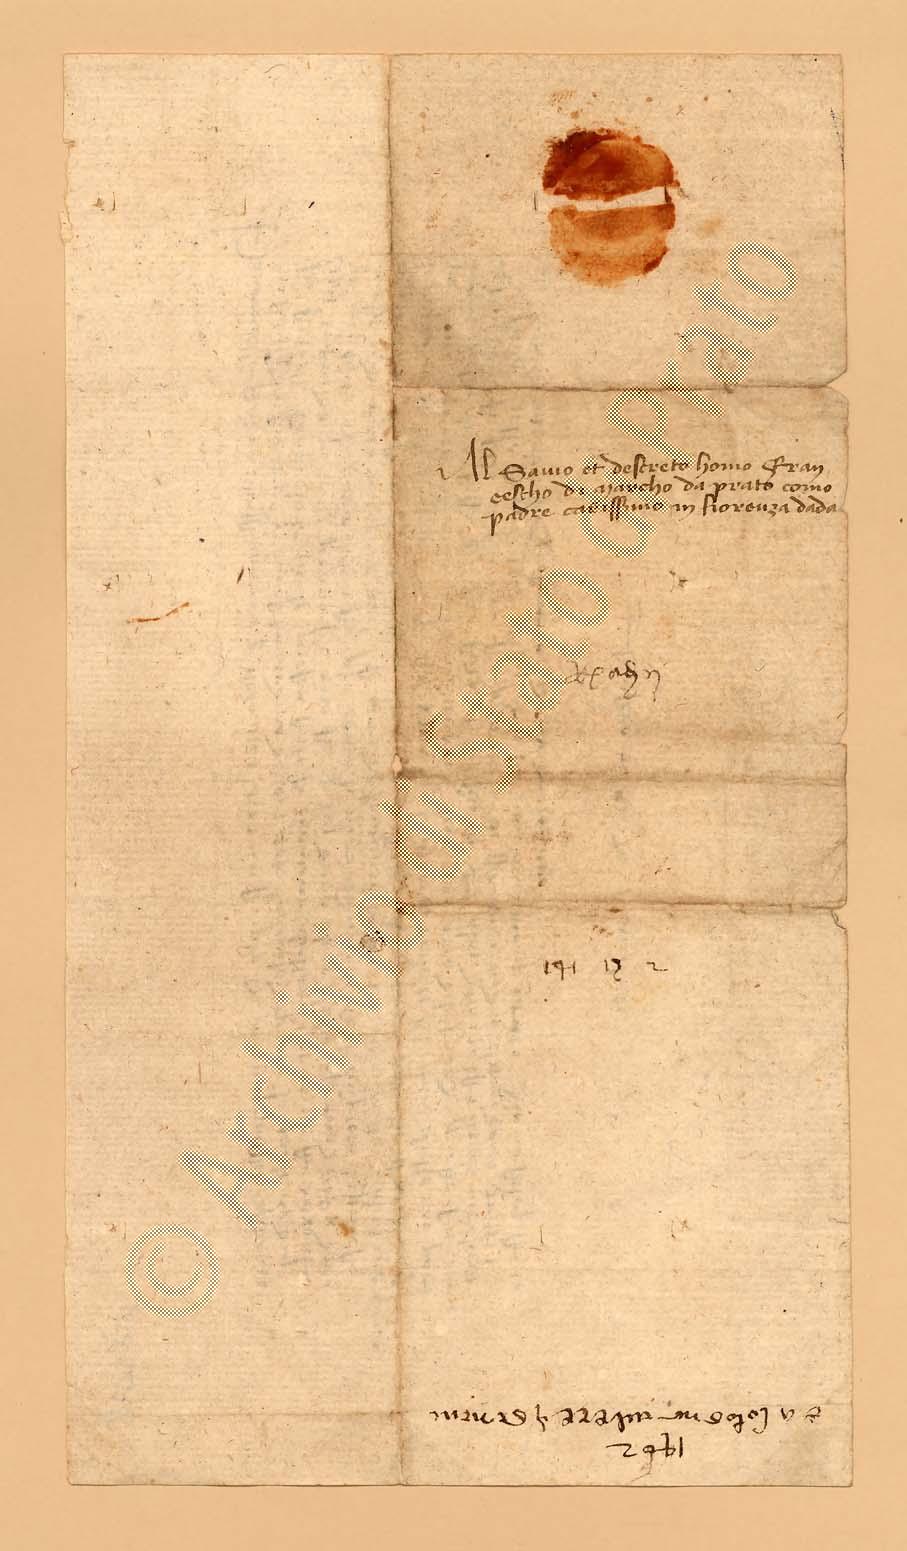 Al Savio et descreto homo Fran
cescho di Marcho da prato como
padre carissimo in fiorenza dada
141 13 2
da bologna
1402
© Archivio di Stato di Prato